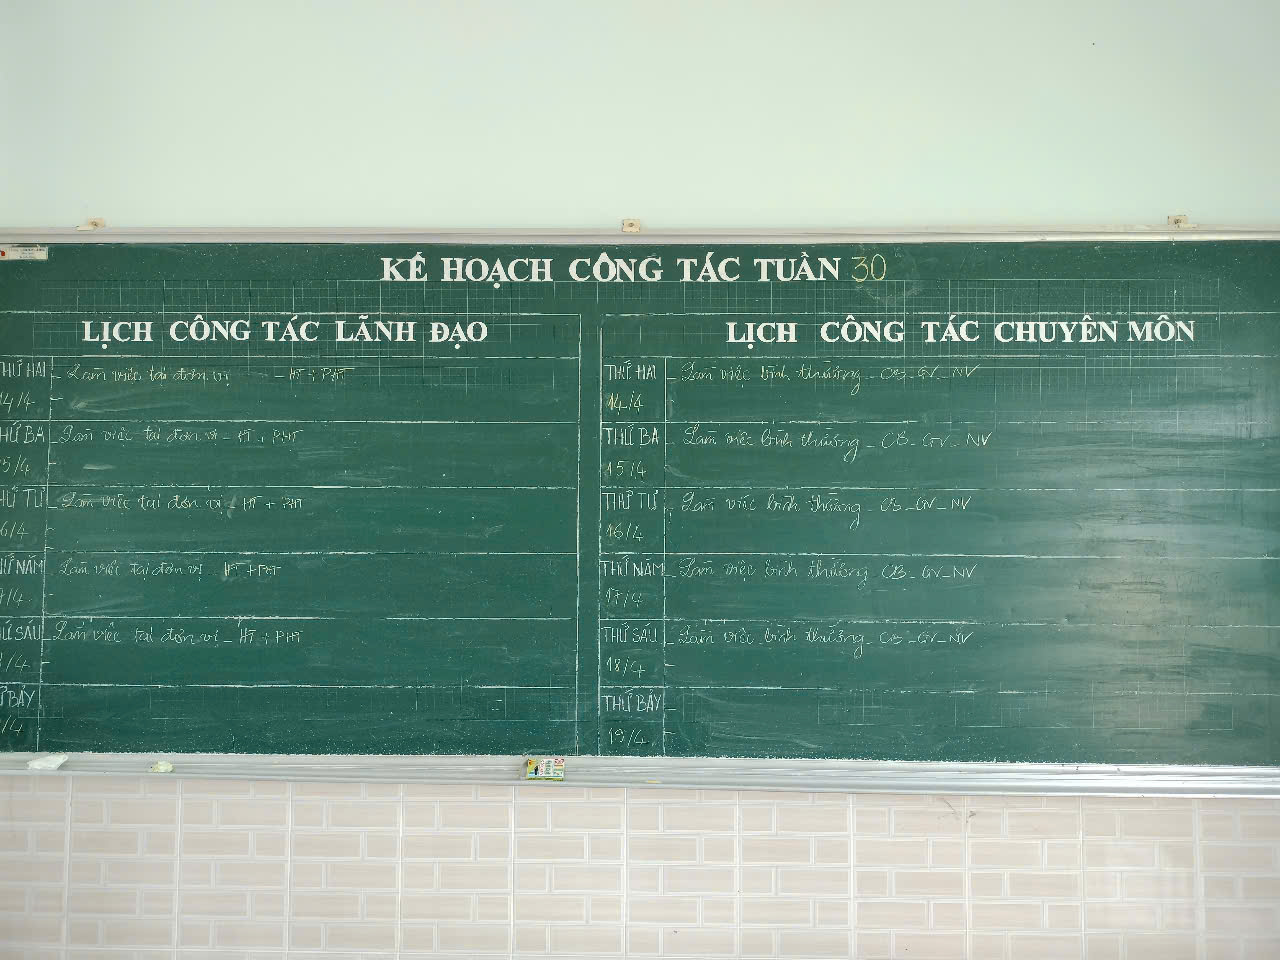 KẾ HOẠCH CÔNG TÁC TUẦN 30
LỊCH CÔNG TÁC LÃNH ĐẠO
THỨ HAI - Làm việc tại đơn vị - HT + PHT
14/4 -
THỨ BA - Làm việc tại đơn vị - HT + PHT
15/4 -
THỨ TƯ - Làm việc tại đơn vị - HT + PHT
16/4 -
THỨ NĂM - Làm việc tại đơn vị - HT + PHT
17/4 -
THỨ SÁU - Làm việc tại đơn vị - HT + PHT
/4 -
THỨ BẢY -
/4 -
LỊCH CÔNG TÁC CHUYÊN MÔN
THỨ HAI - Làm việc bình thường - CB - GV - NV
14/4 -
THỨ BA - Làm việc bình thường - CB - GV - NV
15/4
THỨ TƯ - Làm việc bình thường - CB - GV - NV
16/4 -
THỨ NĂM - Làm việc bình thường - CB - GV - NV
17/4 -
THỨ SÁU - Làm việc bình thường - CB - GV - NV
18/4 -
THỨ BẢY -
19/4 -